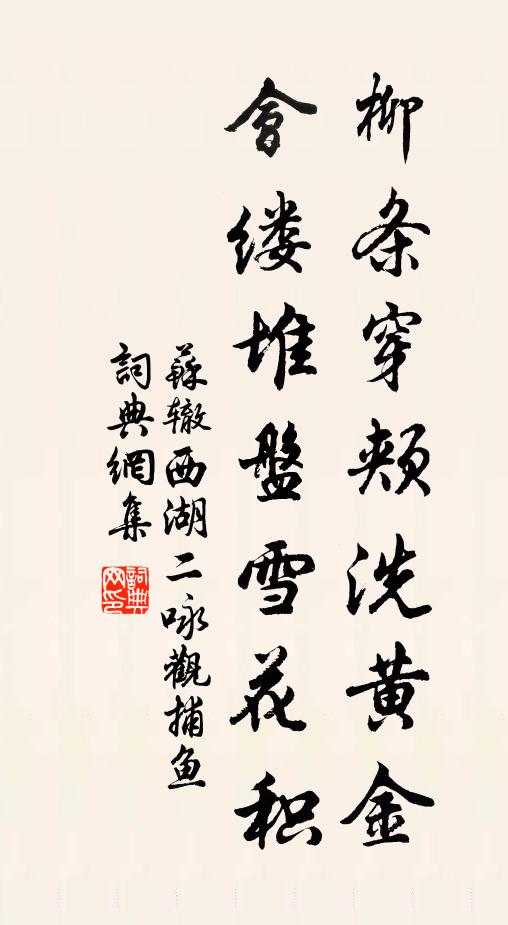 柳条穿颊洗黄金
會缕堆盤雪花积
蘇辙西湖二咏觀捕鱼
詞典網集
詞典网印